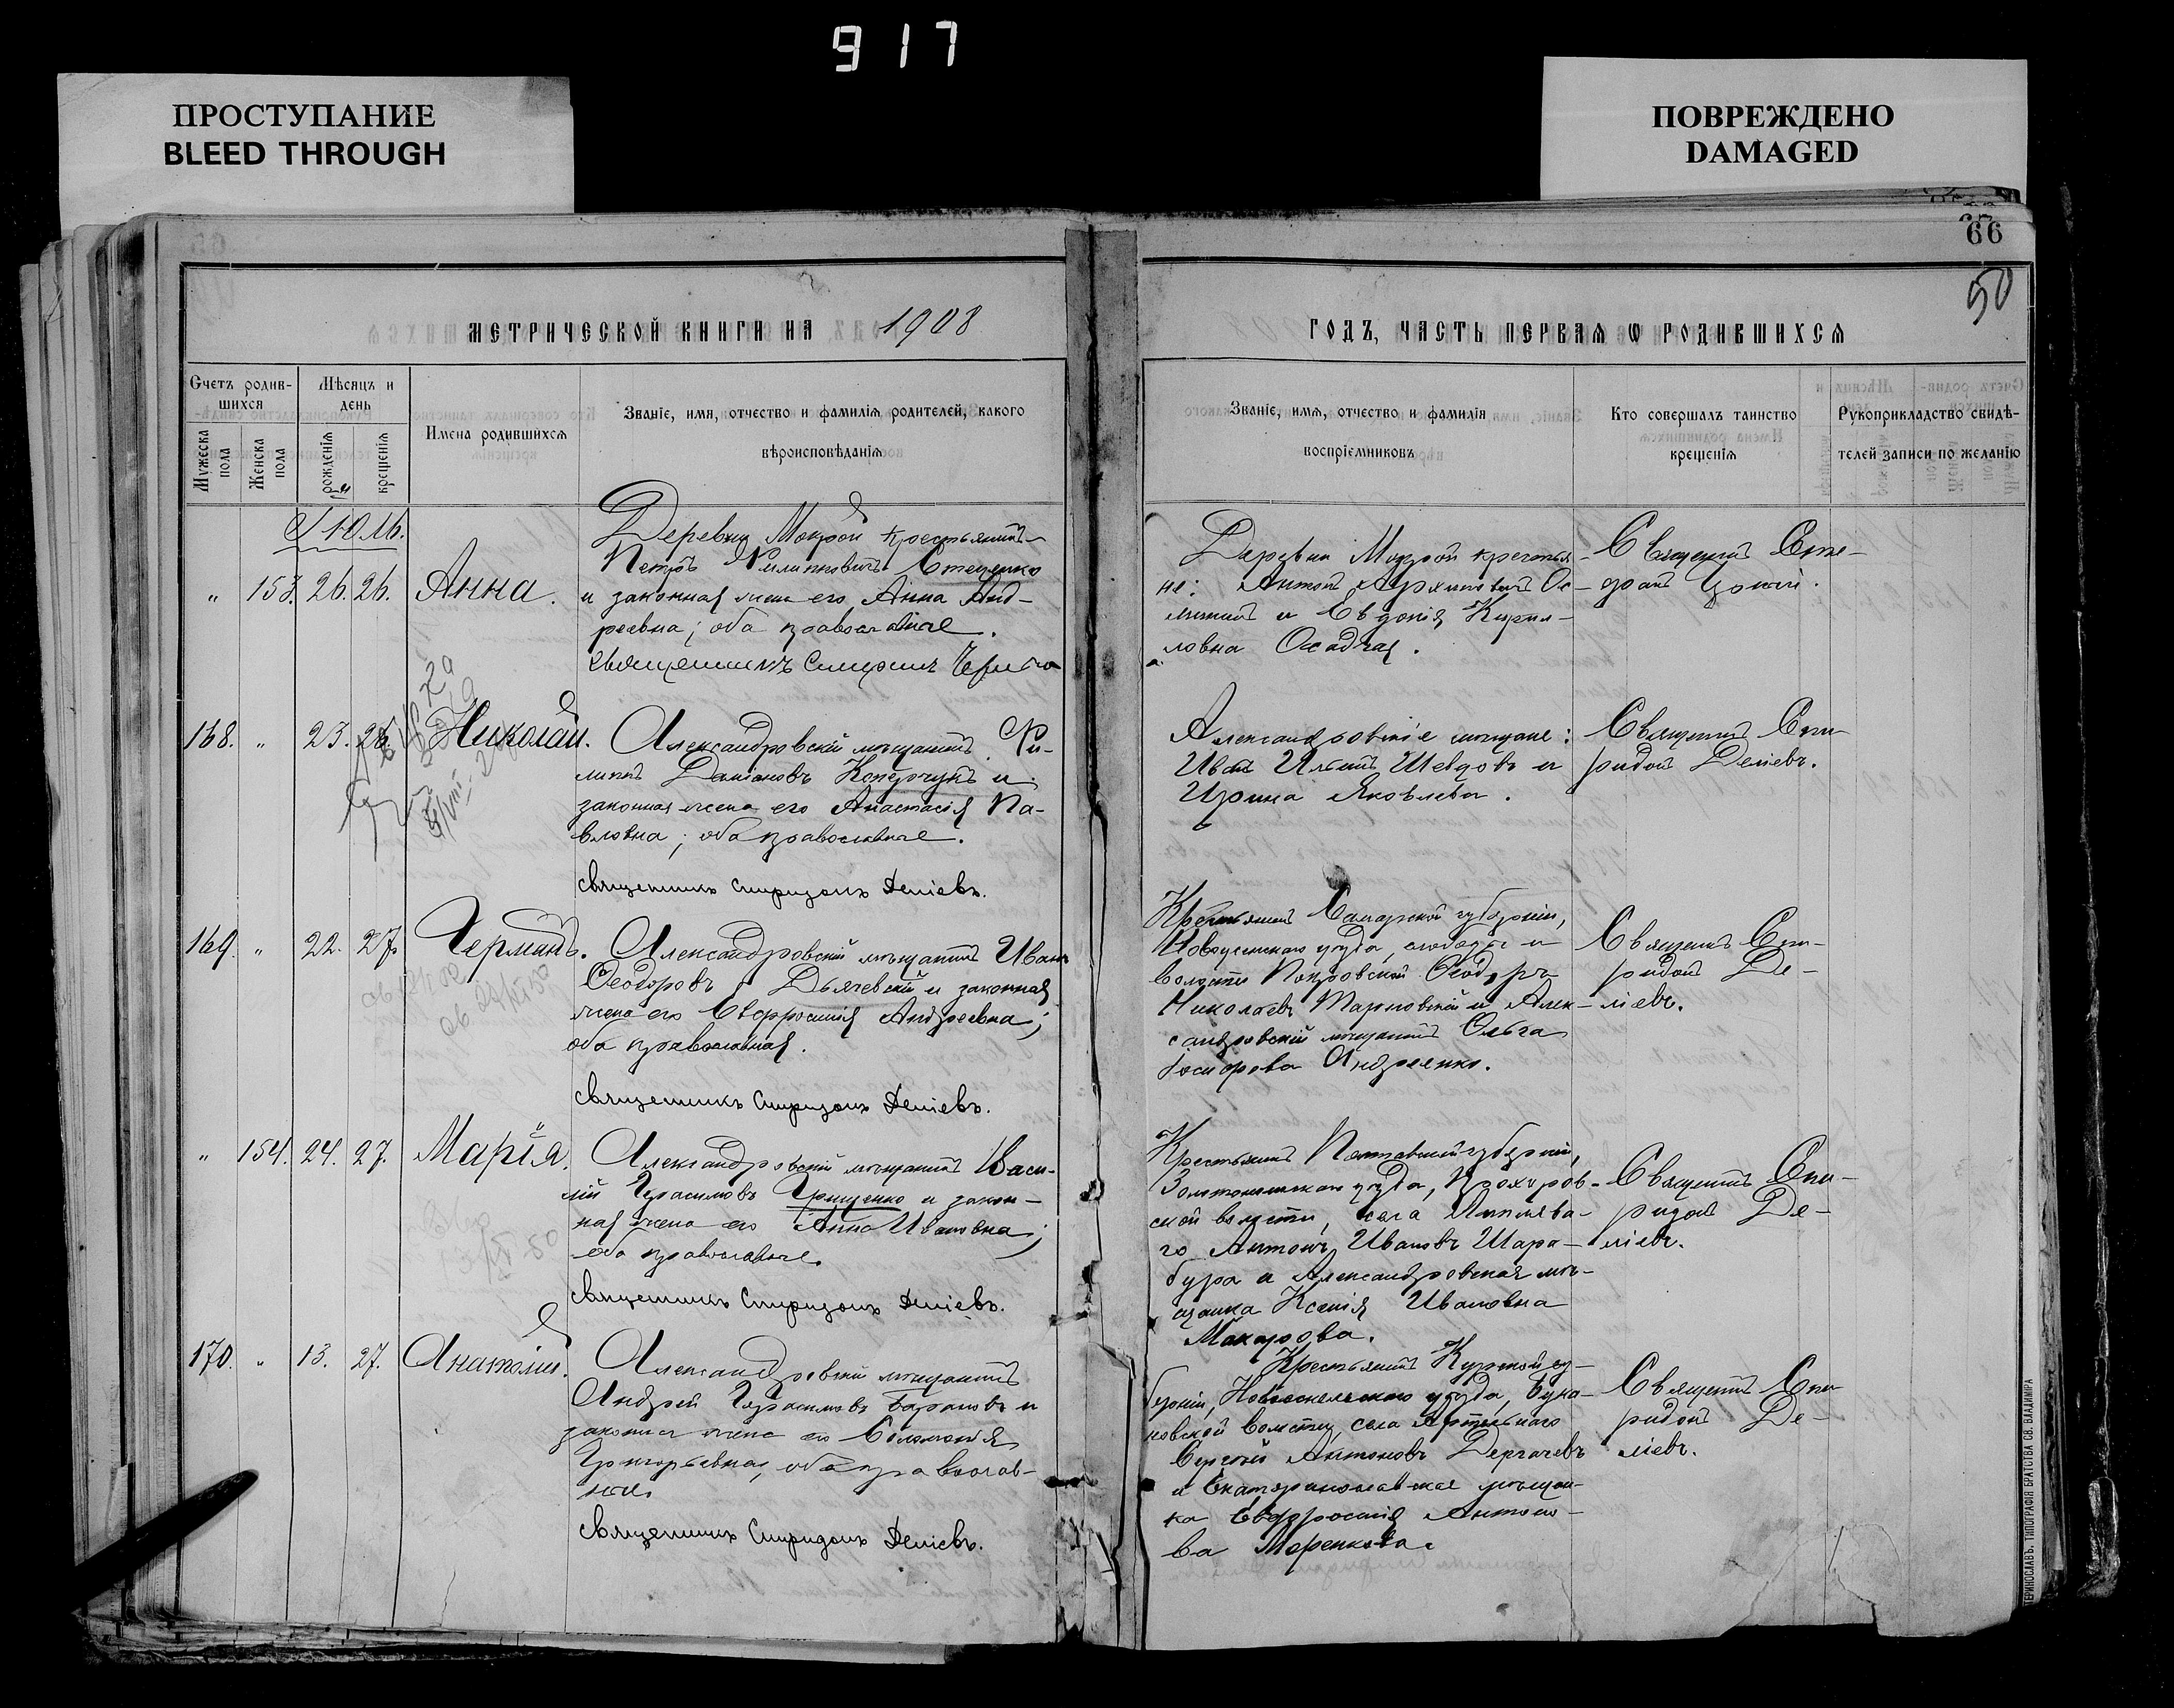 917
ПРОСТУПАНИЕ
BLEED THROUGH
ПОВРЕЖДЕНО
DAMAGED
66
50
МЕТРИЧЕСКОЙ КНИГИ НА 1908
ГОДЪ, ЧАСТЬ ПЕРВАЯ Ѡ РОДИВШИХСЯ
Счетъ родив-
шихся
Мѣсяцъ и
день
Имена родившихся
Званіе, имя, отчество и фамилія родителей, какого
вѣроисповѣданія
Мужеска
пола
Женска
пола
рожденія
крещенія
Званіе, имя, отчество и фамилія
воспріемниковъ
Кто совершалъ таинство
крещенія
Рукоприкладство свидѣ-
телей записи по желанію
Іюль.
„ 153. 26. 26. Анна.
Деревни Мокрой крестьянинъ
Петръ Филипповичъ Стеценко
и законная жена его Анна Анд-
реевна; оба православные.
Деревни Мокрой крестья-
не: Антон
и Евдокія Кирил-
ловна Осадчая.
Священникъ
168. „ 23. 26. Николай.
Александровскій мѣщанинъ Фи-
липпъ
законная жена его Анастасія Па-
вловна; оба православные.
Священникъ Спиридонъ Деміевъ.
Александровскіе мѣщане:
Иван Ильинъ Шевцовъ и
Ирина Яковлева.
Священникъ Спи-
ридонъ Деміевъ.
169. „ 22. 27. Германъ.
Александровскій мѣщанинъ Иванъ
Ѳеодоровъ Дьячевскій и законная
жена его Евфросинія Андреевна;
оба православная.
Священникъ Спиридонъ Деміевъ.
Крестьянинъ Самарской губерніи,
Новоузенскаго уѣзда, слободы и
волости Покровской Ѳеодоръ
Николаевъ и Алек-
сандровскій мѣщанинъ Ольга
Андреенко.
Священникъ Спи-
ридонъ Де-
міевъ.
„ 154. 24. 27. Марія.
Александровскій мѣщанинъ Васи-
лій Герасимовъ Грищенко и закон-
ная жена его Анна Ивановна;
оба православные.
Священникъ Спиридонъ Деміевъ.
Крестьянинъ Полтавской губерніи,
Золотоношскаго уѣзда, Прохоров-
ской волости, села
го Антонъ Ивановъ Шара-
бура и Александровская мѣ-
щанка Ксенія Ивановна
Макарова.
Священникъ Спи-
ридонъ Де-
міевъ.
170. „ 13. 27. Анатолій.
Александровскій мѣщанинъ
Андрей Герасимовъ Барановъ и
законная жена его Соломонія
Григорьевна, оба православ-
ные.
Священникъ Спиридонъ Деміевъ.
Крестьянинъ Курской гу-
берніи, Новооскольскаго уѣзда,
новской волости, села
Сергѣй Антоновъ Дергачевъ
и Екатеринославская мѣщан-
ка Евфросинія Антоно-
ва Меренкова.
Священникъ Спи-
ридонъ Де-
міевъ.
ТЕРИНОСЛАВЪ. ТИПОГРАФІЯ БРАТСТВА СВ. ВЛАДИМІРА